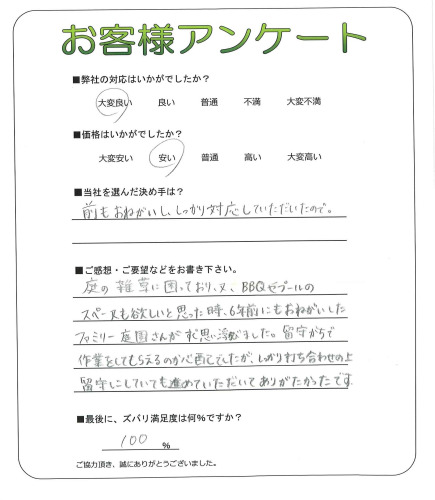 お客様アンケート
■弊社の対応はいかがでしたか?
大変良い 良い 普通 不満 大変不満
■価格はいかがでしたか?
大変安い 安い 普通 高い 大変高い
■当社を選んだ決め手は?
前もおねがいし、しっかり対応していただいたので。
■ご感想・ご要望などをお書き下さい。
庭の雑草に困っており、又、BBQやプールの
スペースも欲しいと思った時、6年前にもおねがいした
ファミリー庭園さんがすぐ思い浮びました。留守がちで
作業をしてもらえるのか心配でしたが、しっかり打ち合わせの上
留守にしていても進めていただいてありがたかったです
■最後に、ズバリ満足度は何%ですか?
100 %
ご協力頂き、誠にありがとうございました。